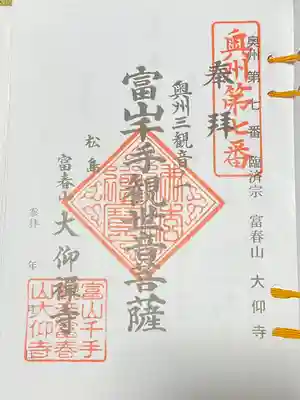 奥州第七番 臨済宗 富春山 大仰寺
奥州第七番
奉拝
奥州三観音一
富山千手観世音菩薩
松島
富春山 大仰禅寺
参拝 年
富山千手
山大仰寺